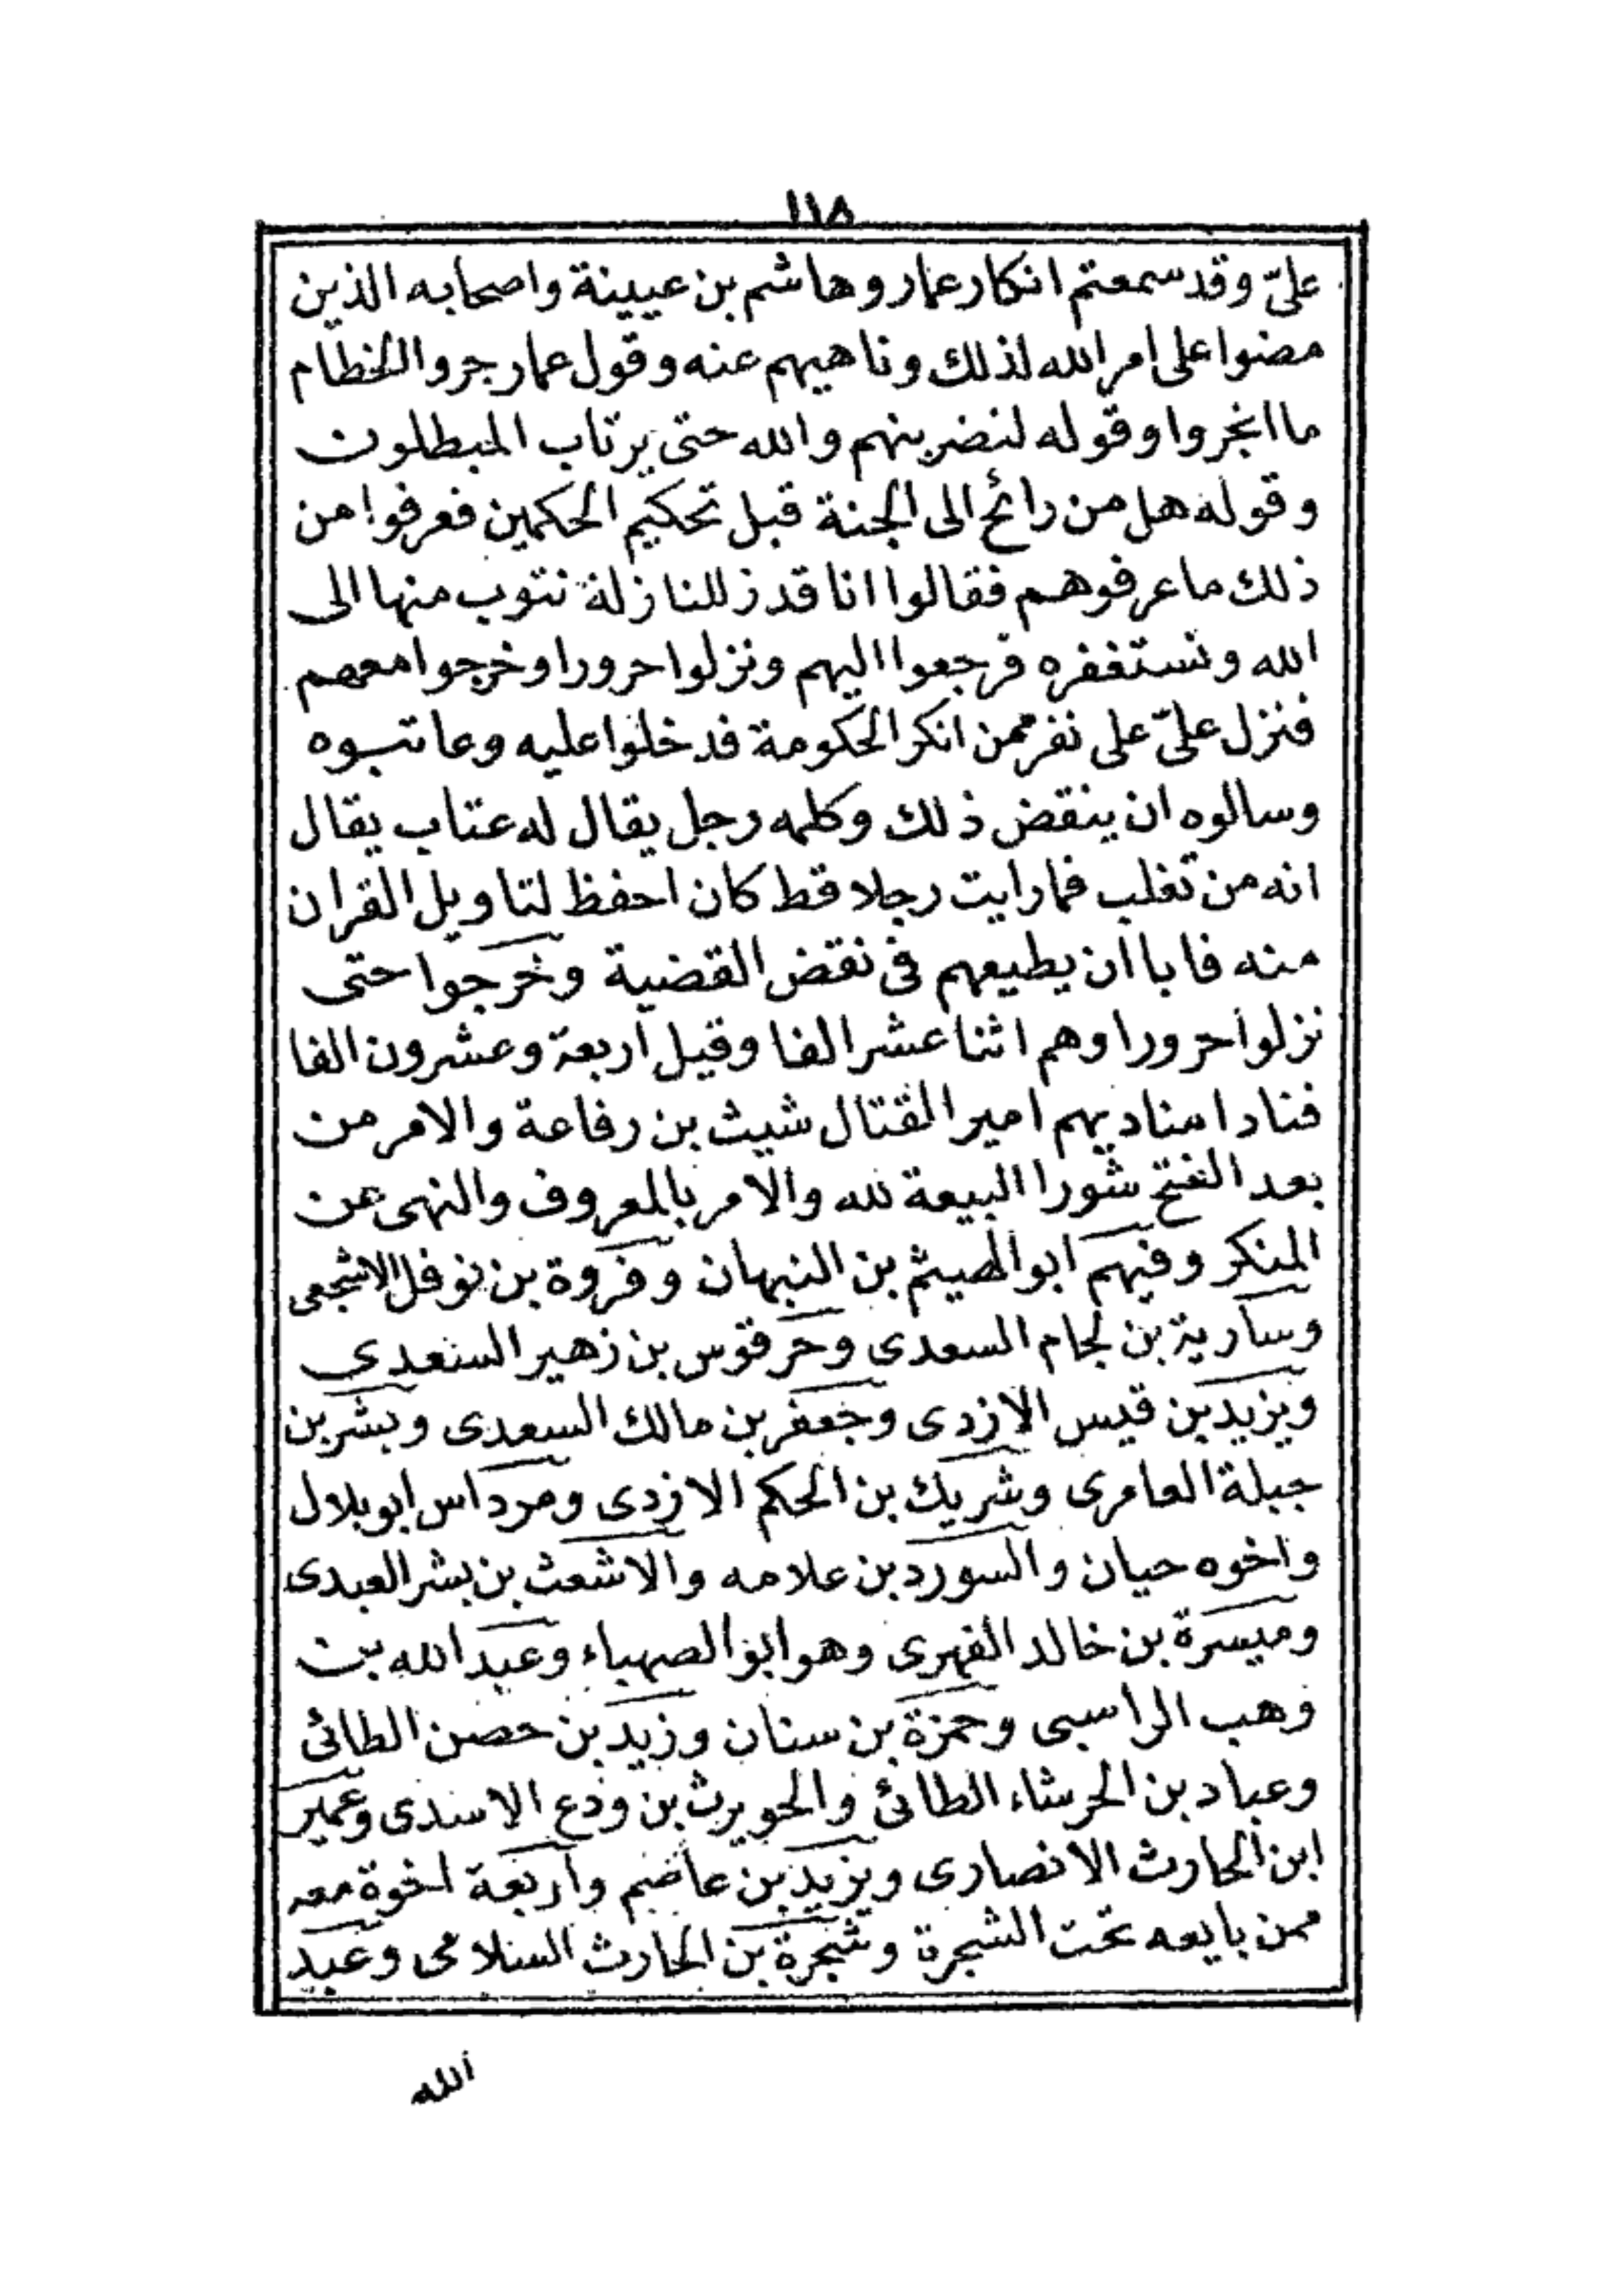 ١١٨
علىّ وقد سمعتم انكار عمار وهاشم بن عيينة واصحابه الذين
مضوا على امر الله لذلك وناهيهم عنه وقول عمار جروا الخطام
ما انجروا وقوله لنضربنهم والله حتى يرتاب المبطلون
وقوله هل من رائح الى الجنة قبل تحكيم الحكمين فعرفوا من
ذلك ما عرفوهم فقالوا انا قد زللنا زلة نتوب منها الى
الله ونستغفره فرجعوا اليهم ونزلوا حرورا وخرجوا معهم
فنزل علىّ على نفر ممن انكر الحكومة فدخلوا عليه وعاتبوه
وسالوه ان ينقض ذلك وكلمه رجل يقال له عتاب يقال
انه من تغلب فما رايت رجلا قط كان احفظ لتاويل القران
منه فابا ان يطيعهم فى نقض القضية وخرجوا حتى
نزلوا حرورا وهم اثنا عشر الفا وقيل اربعة وعشرون الفا
فنادا مناديهم امير القتال شيث بن رفاعة والامر من
بعد الفتح شورا البيعة لله والامر بالمعروف والنهى عن
المنكر وفيهم ابو الهيثم بن النبهان وفروة بن نوفل الاشجعى
وسارية بن لجام السعدى وحرقوس بن زهير السعدي
ويزيد بن قيس الازدى وجعفر بن مالك السعدى وبشر بن
جبلة العامرى وشريك بن الحكم الازدى ومرداس ابو بلال
واخوه حيان والسورد بن علامه والاشعث بن بشر العبدى
وميسرة بن خالد الفهرى وهو ابو الصهباء وعبد الله بن
وهب الراسبى وحمزة بن سنان وزيد بن حصن الطائى
وعباد بن الحرشاء الطائى والحويرث بن ودع الاسدى وعمير
ابن الحارث الانصارى ويزيد بن عاصم واربعة اخوة معه
ممن بايعه تحت الشجرة وشجرة بن الحارث السلامى وعبيد
الله